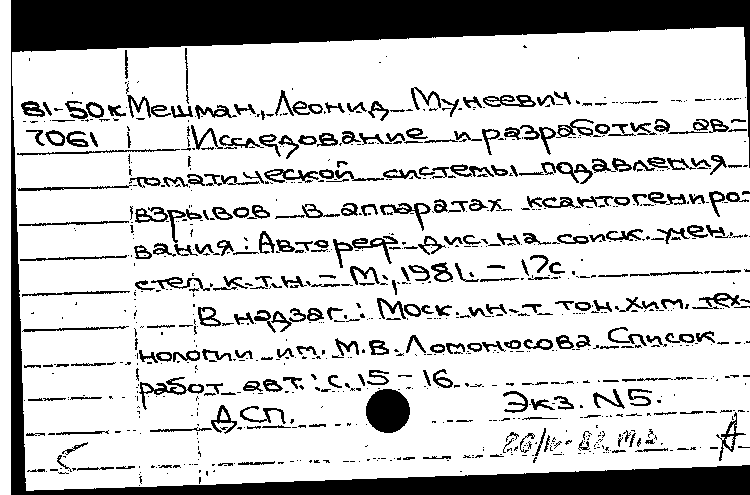 81-50к Мешман, Леонид Мунеевич.
7061 Исследование и разработка ав-
томатической системы подавления
взрывов в аппаратах ксантогениро-
вания: Автореф. дис. на соиск. учен.
степ. к.т.н. - М., 1981. - 17с.
В надзаг.: Моск. ин-т тон. хим. тех-
нологии им. М.В. Ломоносова. Список
работ авт.: с. 15-16
ДСП. Экз. N5.
А